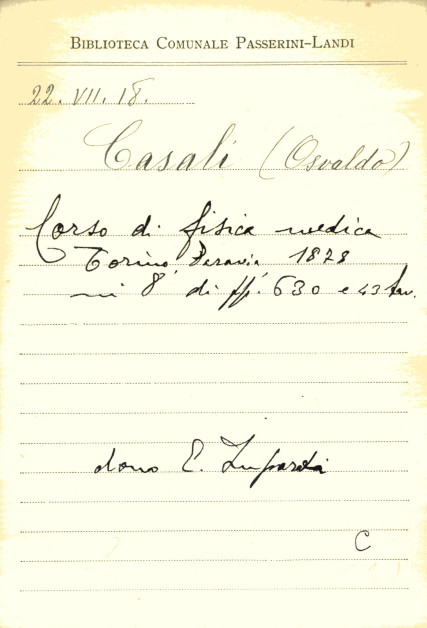 BIBLIOTECA COMUNALE PASSERINI-LANDI
22. VII. 18.
Casali (Osvaldo)
Corso di fisica medica
Torino, Paravia, 1878
in 8° di pp. 630 e 43 tav.
dono E.
C